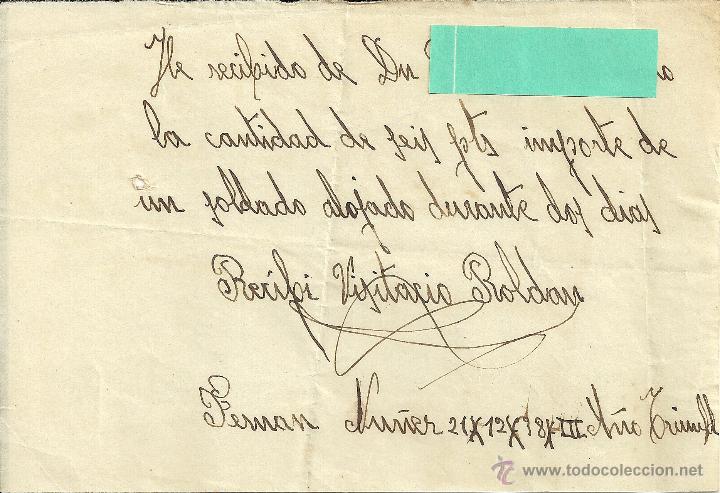 He recibido de Dn
la cantidad de seis pts importe de
un soldado alojado durante dos dias
Recibi Visitacio Roldan
Fernan Nuñez 21X12X38X-III Año Triunfal
todocoleccion
www.todocoleccion.net